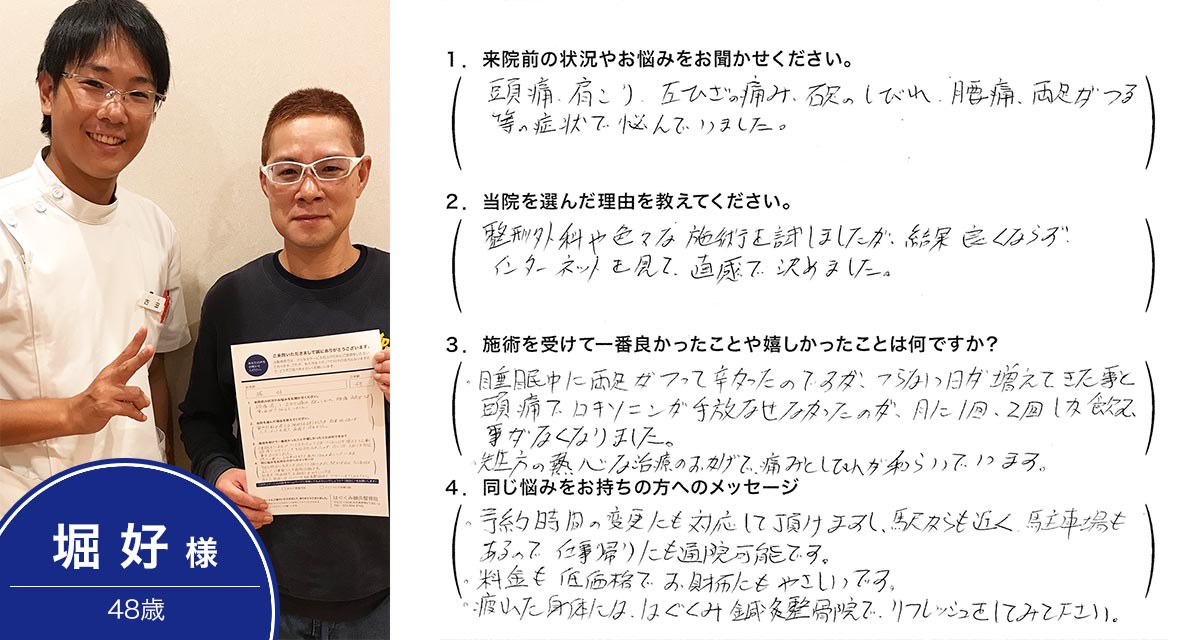 堀 好 様
48歳
1. 来院前の状況やお悩みをお聞かせください。
頭痛、肩こり、左ひざの痛み、腕のしびれ、腰痛、両足がつる
等の症状で悩んでいました。
2. 当院を選んだ理由を教えてください。
整形外科や色々な施術を試しましたが、結果良くならず、
インターネットを見て、直感で決めました。
3. 施術を受けて一番良かったことや嬉しかったことは何ですか？
・睡眠中に両足がつって辛かったのですが、つらない日が増えてきた事と
頭痛でロキソニンが手放なせなかったのが、月に1回、2回しか飲む
事がなくなりました。
・先生方の熱心な治療のおかげで、痛みとしびれが和らいでいます。
4. 同じ悩みをお持ちの方へのメッセージ
・予約時間の変更にも対応して頂けますし、駅からも近く、駐車場も
あるので、仕事帰りにも通院可能です。
・料金も低価格で、お財布にもやさしいです。
・疲れた身体には、はぐくみ鍼灸整骨院で、リフレッシュをしてみて下さい。
ご来院いただきまして誠にありがとうございます。
はぐくみ鍼灸整骨院